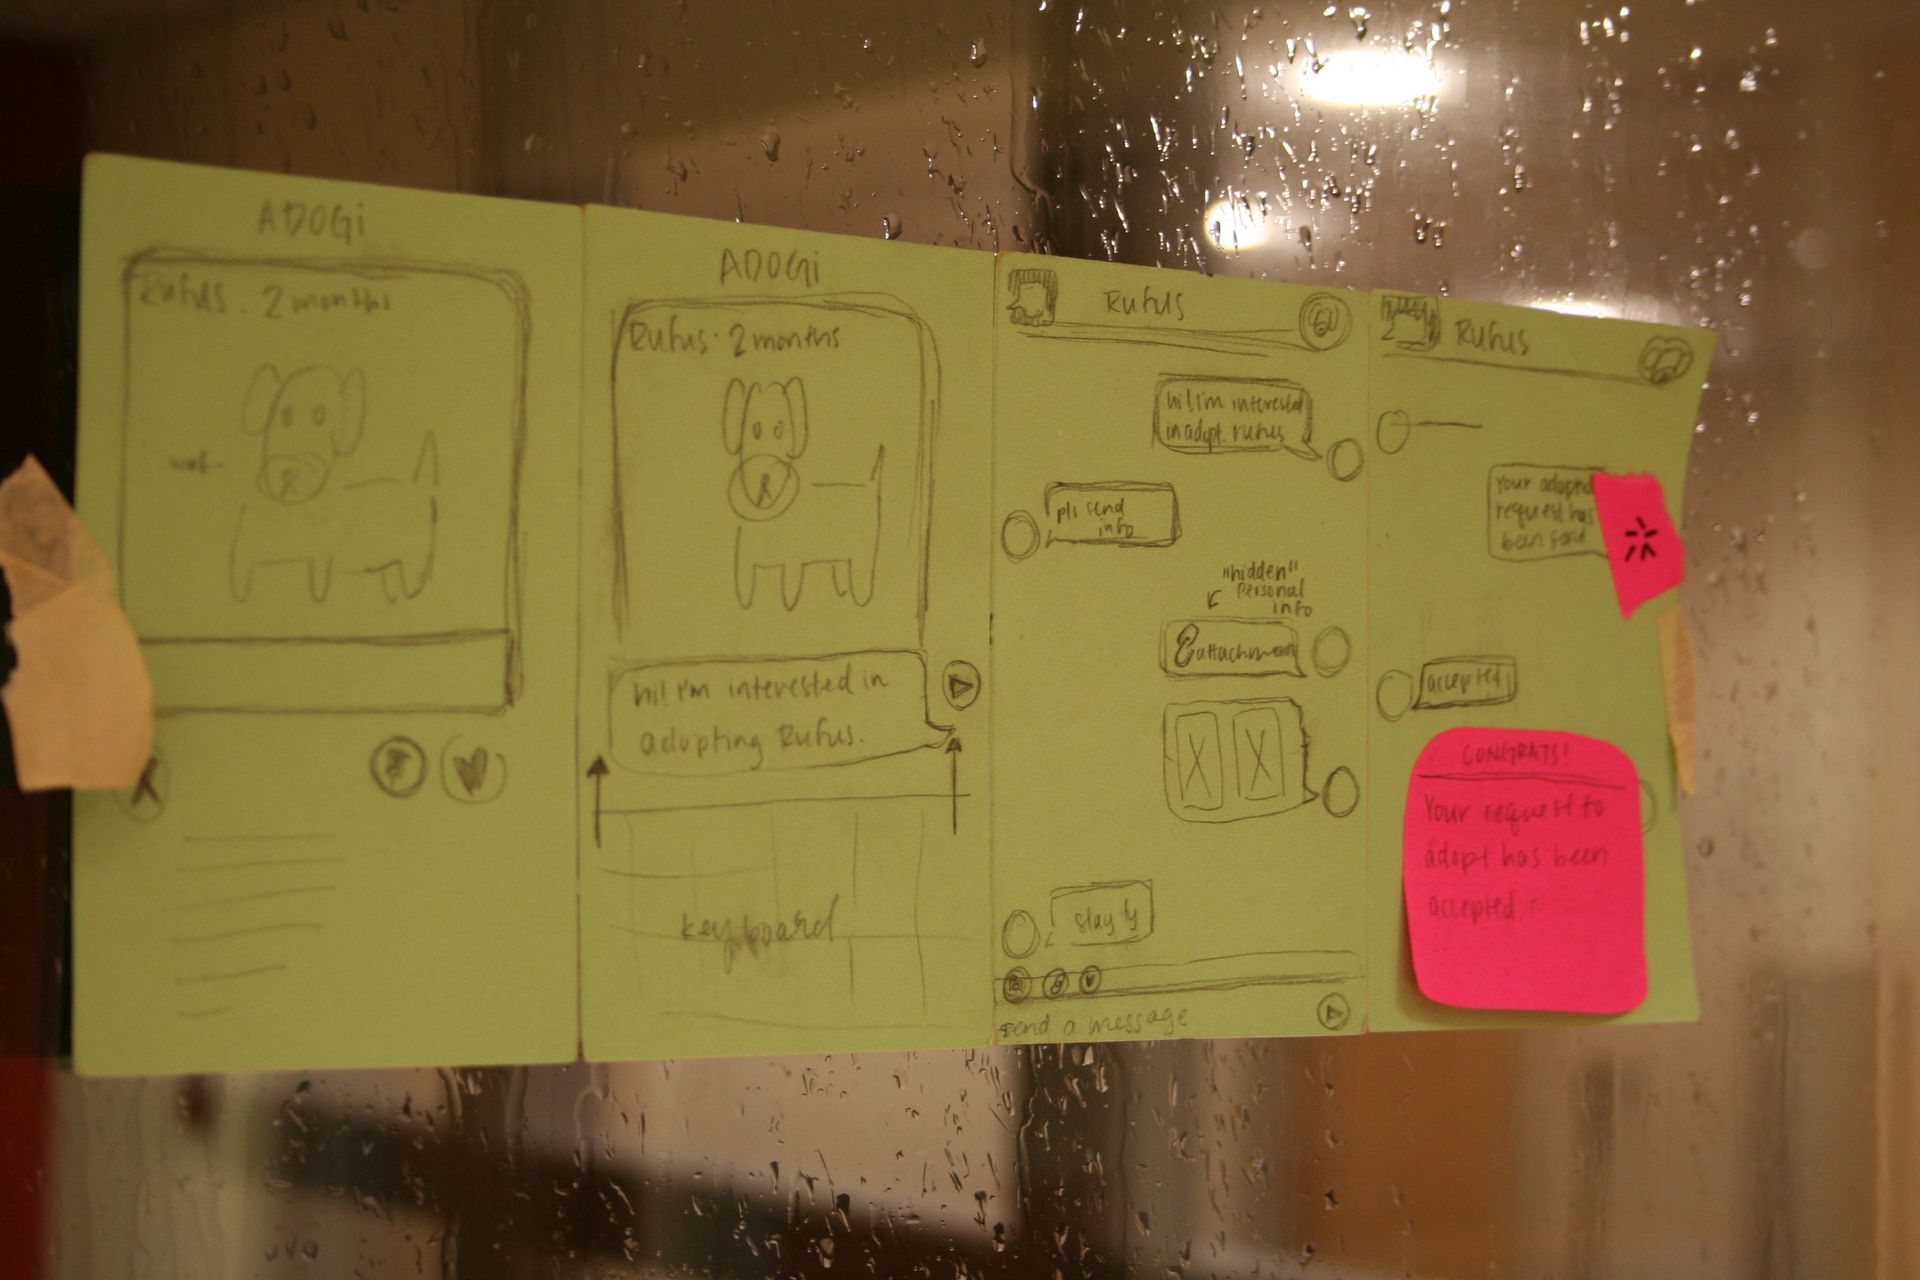 ADOGi
Rufus. 2 months
wof-
X
ADOGi
Rufus. 2 months
hi! I'm interested in
adopting Rufus.
keyboard
Rufus
hi! I'm interested
in adopt. rufus
pls send
info
"hidden"
personal
info
attachment
X X
slay ty
send a message
Rufus
Your
request has
been
accepted
CONGRATS!
Your request to
adopt has been
accepted.